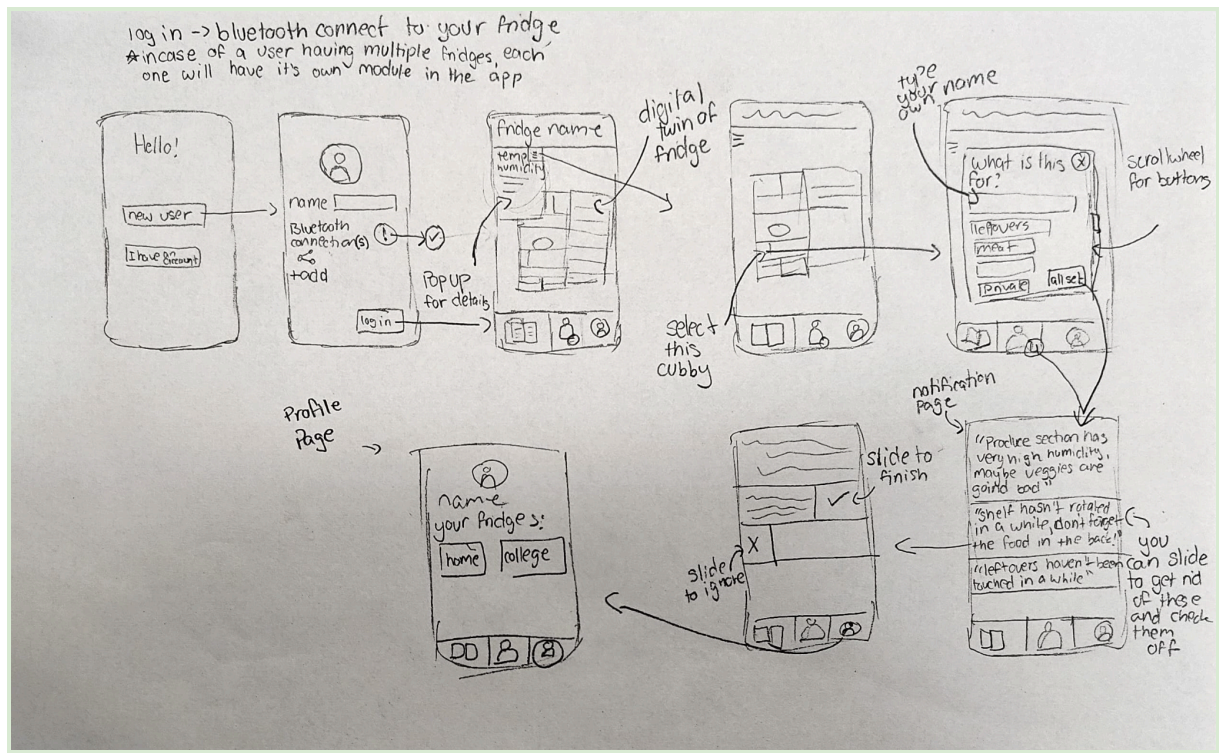 log in -> bluetooth connect to your fridge
*incase of a user having multiple fridges, each
one will have it's own module in the app
Hello!
new user
I have an account
name
Bluetooth
connection(s)
+add
log in
fridge name
temp
humidity
Pop up
for details
digital
twin of
fridge
select
this
cubby
type
your
own
name
what is this
for?
X
leftovers
meat
private
all set
scroll wheel
for buttons
notification
page
"Produce section has
very high humidity,
maybe veggies are
going bad"
"shelf hasn't rotated
in a while, don't forget
the food in the back!"
"leftovers haven't been
touched in a while"
you
can slide
to get rid
of these
and check
them
off
slide to
finish
X
slide
to ignore
Profile
Page
name
your fridges:
home
college